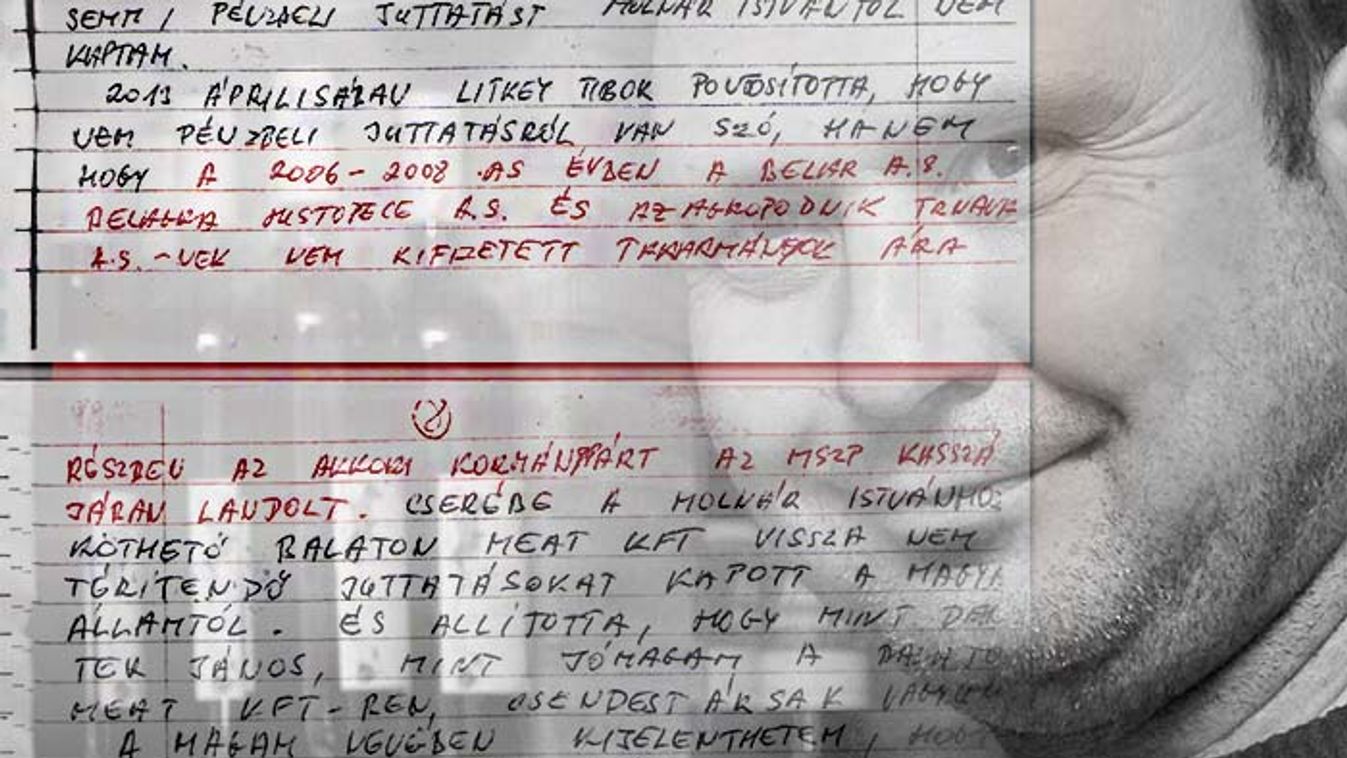 SEMMI PÉNZBELI JUTTATÁST MOLNÁR ISTVÁNTÓL NEM
KAPTAM.
2013 ÁPRILISÁBAN LITKEY TIBOR PONTOSÍTOTTA, HOGY
NEM PÉNZBELI JUTTATÁSRÓL VAN SZÓ, HANEM
HOGY A 2006-2008-AS ÉVBEN A BELAR A.S.
BELAGRA HUSTOPECE A.S. ÉS AZ AGROPODNIK TRNAVA
A.S.-NEK NEM KIFIZETETT TAKARMÁNYOK ÁRA
8
RÉSZBEN AZ AKKORI KORMÁNYPÁRT AZ MSZP KASSZÁ
JÁBAN LANDOLT. CSERÉBE A MOLNÁR ISTVÁNHOZ
KÖTHETŐ BALATON MEAT KFT VISSZA NEM
TÉRÍTENDŐ JUTTATÁSOKAT KAPOTT A MAGYAR
ÁLLAMTÓL. ÉS ÁLLÍTOTTA, HOGY MINT
TEK JÁNOS, MINT JÓMAGAM A BALATON
MEAT KFT-BEN, CSENDESTÁRSAK VAGYUNK
A MAGAM NEVÉBEN KIJELENTHETEM, HOGY